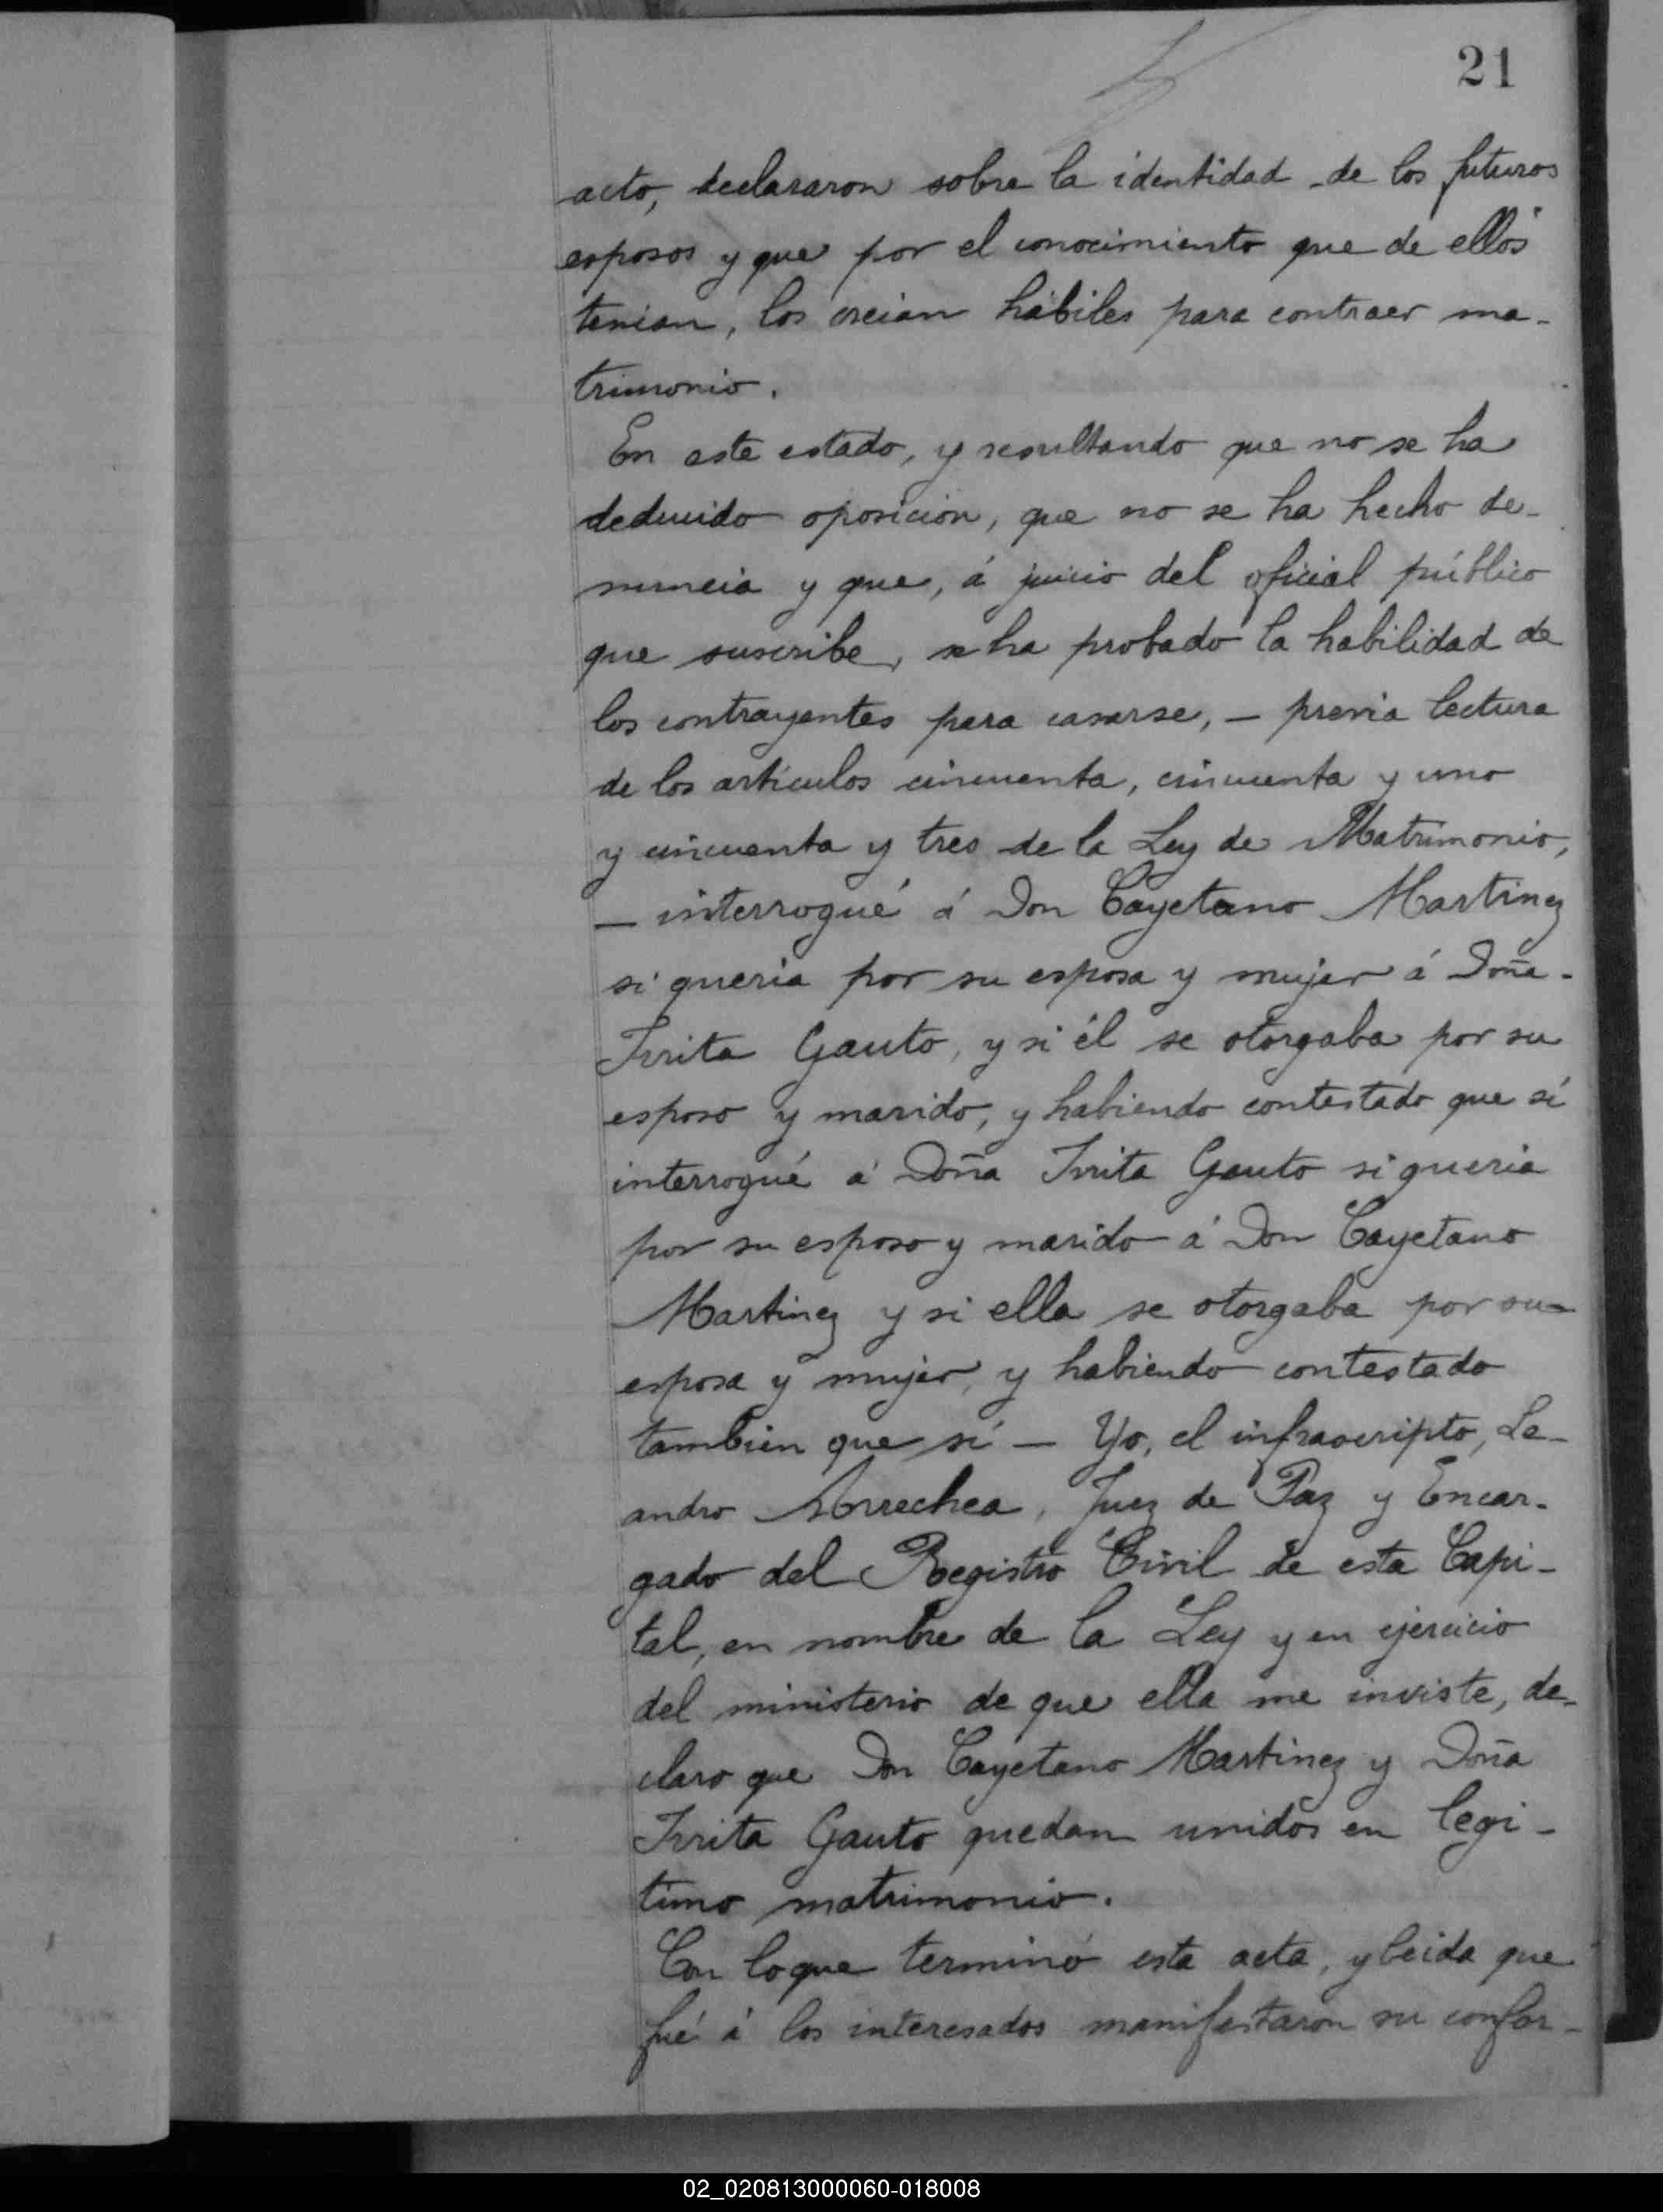 21
acto, declararon sobre la identidad de los futuros
esposos y que por el conocimiento que de ellos
tenian, los creian hábiles para contraer ma-
trimonio.
En este estado, y resultando que no se ha
deducido oposicion, que no se ha hecho de-
nuncia y que, á juicio del oficial público
que suscribe, se ha probado la habilidad de
los contrayentes para casarse, — previa lectura
de los artículos cincuenta, cincuenta y uno
y cincuenta y tres de la Ley de Matrimonio,
— interrogué á Don Cayetano Martinez
si queria por su esposa y mujer á Doña
Irrita Gauto, y si él se otorgaba por su
esposo y marido, y habiendo contestado que sí
interrogué á Doña Irrita Gauto si queria
por su esposo y marido á Don Cayetano
Martinez y si ella se otorgaba por su
esposa y mujer, y habiendo contestado
tambien que sí — Yo, el infrascripto, Le-
andro Arrechea, Juez de Paz y Encar-
gado del Registro Civil de esta Capi-
tal, en nombre de la Ley y en ejercicio
del ministerio de que ella me inviste, de-
claro que Don Cayetano Martinez y Doña
Irrita Gauto quedan unidos en legi-
timo matrimonio.
Con lo que terminó esta acta, y leida que
fué á los interesados manifestaron su confor-
02_020813000060-018008